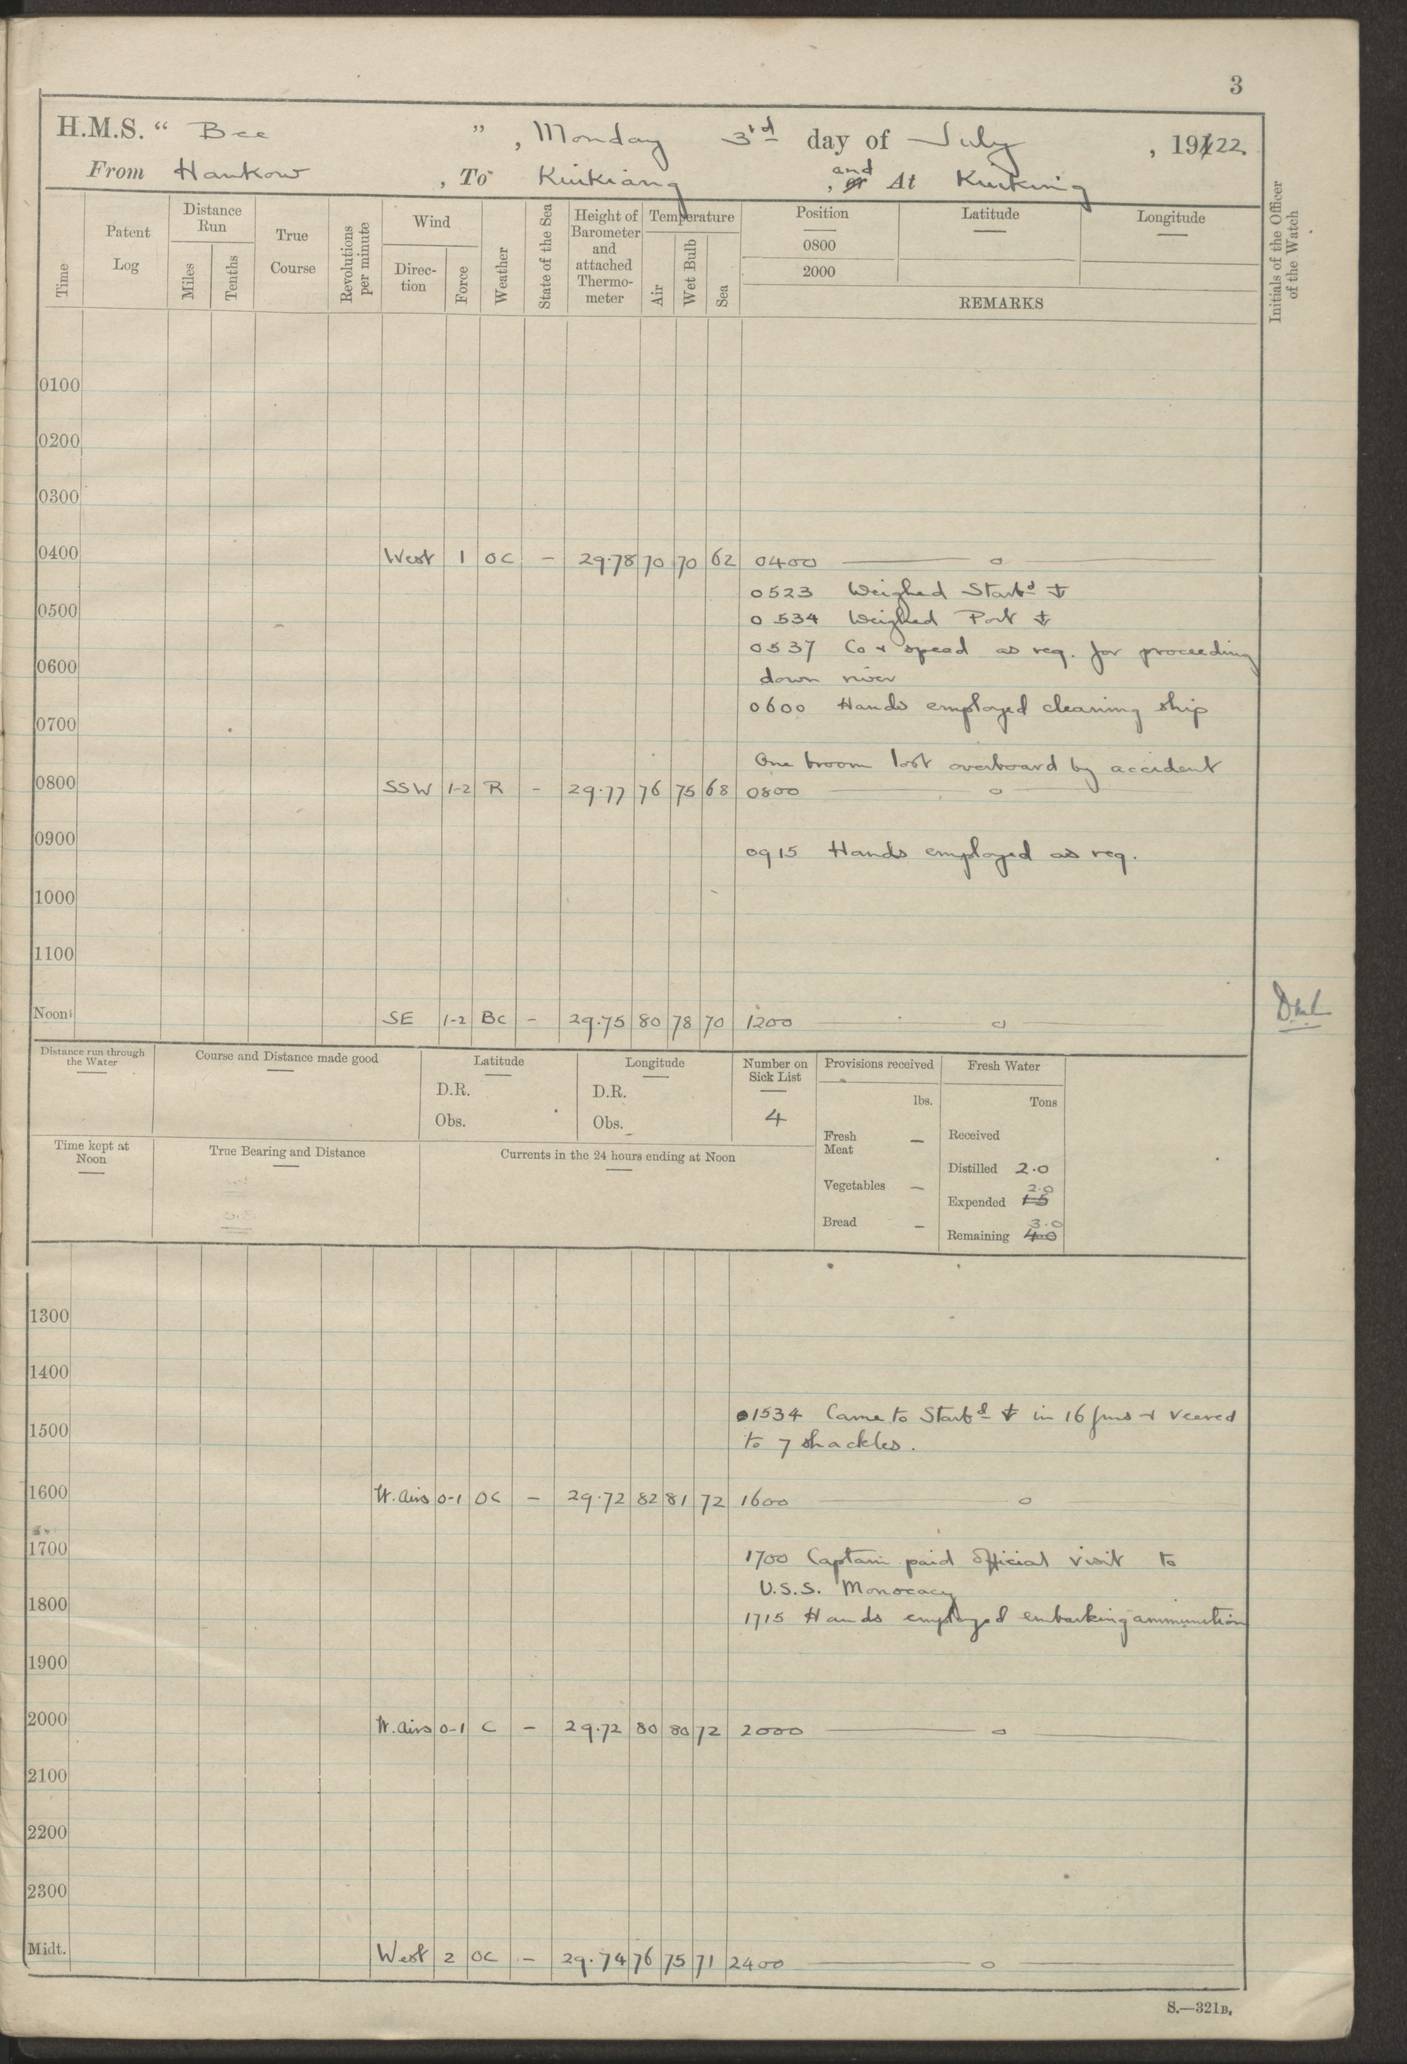 3
H.M.S. “ Bee ”, Monday 3rd day of July , 1922
From Hankow , To Kiukiang , and At Kiukiang
Time
Patent Log
Distance Run
Miles
Tenths
True Course
Revolutions per minute
Wind
Direction
Force
Weather
State of the Sea
Height of Barometer and attached Thermometer
Temperature
Air
Wet Bulb
Sea
Position
0800
2000
Latitude
Longitude
REMARKS
Initials of the Officer of the Watch
0100
0200
0300
0400 West 1 OC - 29.78 70 70 62 0400 — o —
0523 Weighed Starbd ⚓
0500
0534 Weighed Port ⚓
0537 Co & speed as req. for proceeding
0600
down river
0600 Hands employed cleaning ship
0700
One broom lost overboard by accident
0800 SSW 1-2 R - 29.77 76 75 68 0800 — o —
0900
0915 Hands employed as req.
1000
1100
Noon SE 1-2 BC - 29.75 80 78 70 1200 o
Distance run through the Water
Course and Distance made good
Latitude
D.R.
Obs.
Longitude
D.R.
Obs.
Number on Sick List
4
Provisions received
lbs.
Fresh Meat —
Vegetables —
Bread —
Fresh Water
Tons
Received
Distilled 2.0
2.0
Expended 1.5
3.0
Remaining 4.0
Time kept at Noon
True Bearing and Distance
Currents in the 24 hours ending at Noon
1300
1400
1534 Came to Starbd ⚓ in 16 fms & veered
1500
to 7 shackles.
1600 W. airs 0-1 OC - 29.72 82 81 72 1600 — o —
1700
1700 Captain paid official visit to
U.S.S. Monocacy
1800
1715 Hands employed embarking ammunition
1900
2000 W. airs 0-1 C - 29.72 80 80 72 2000 — o —
2100
2200
2300
Midt. West 2 OC - 29.74 76 75 71 2400 — o —
S.—321B.